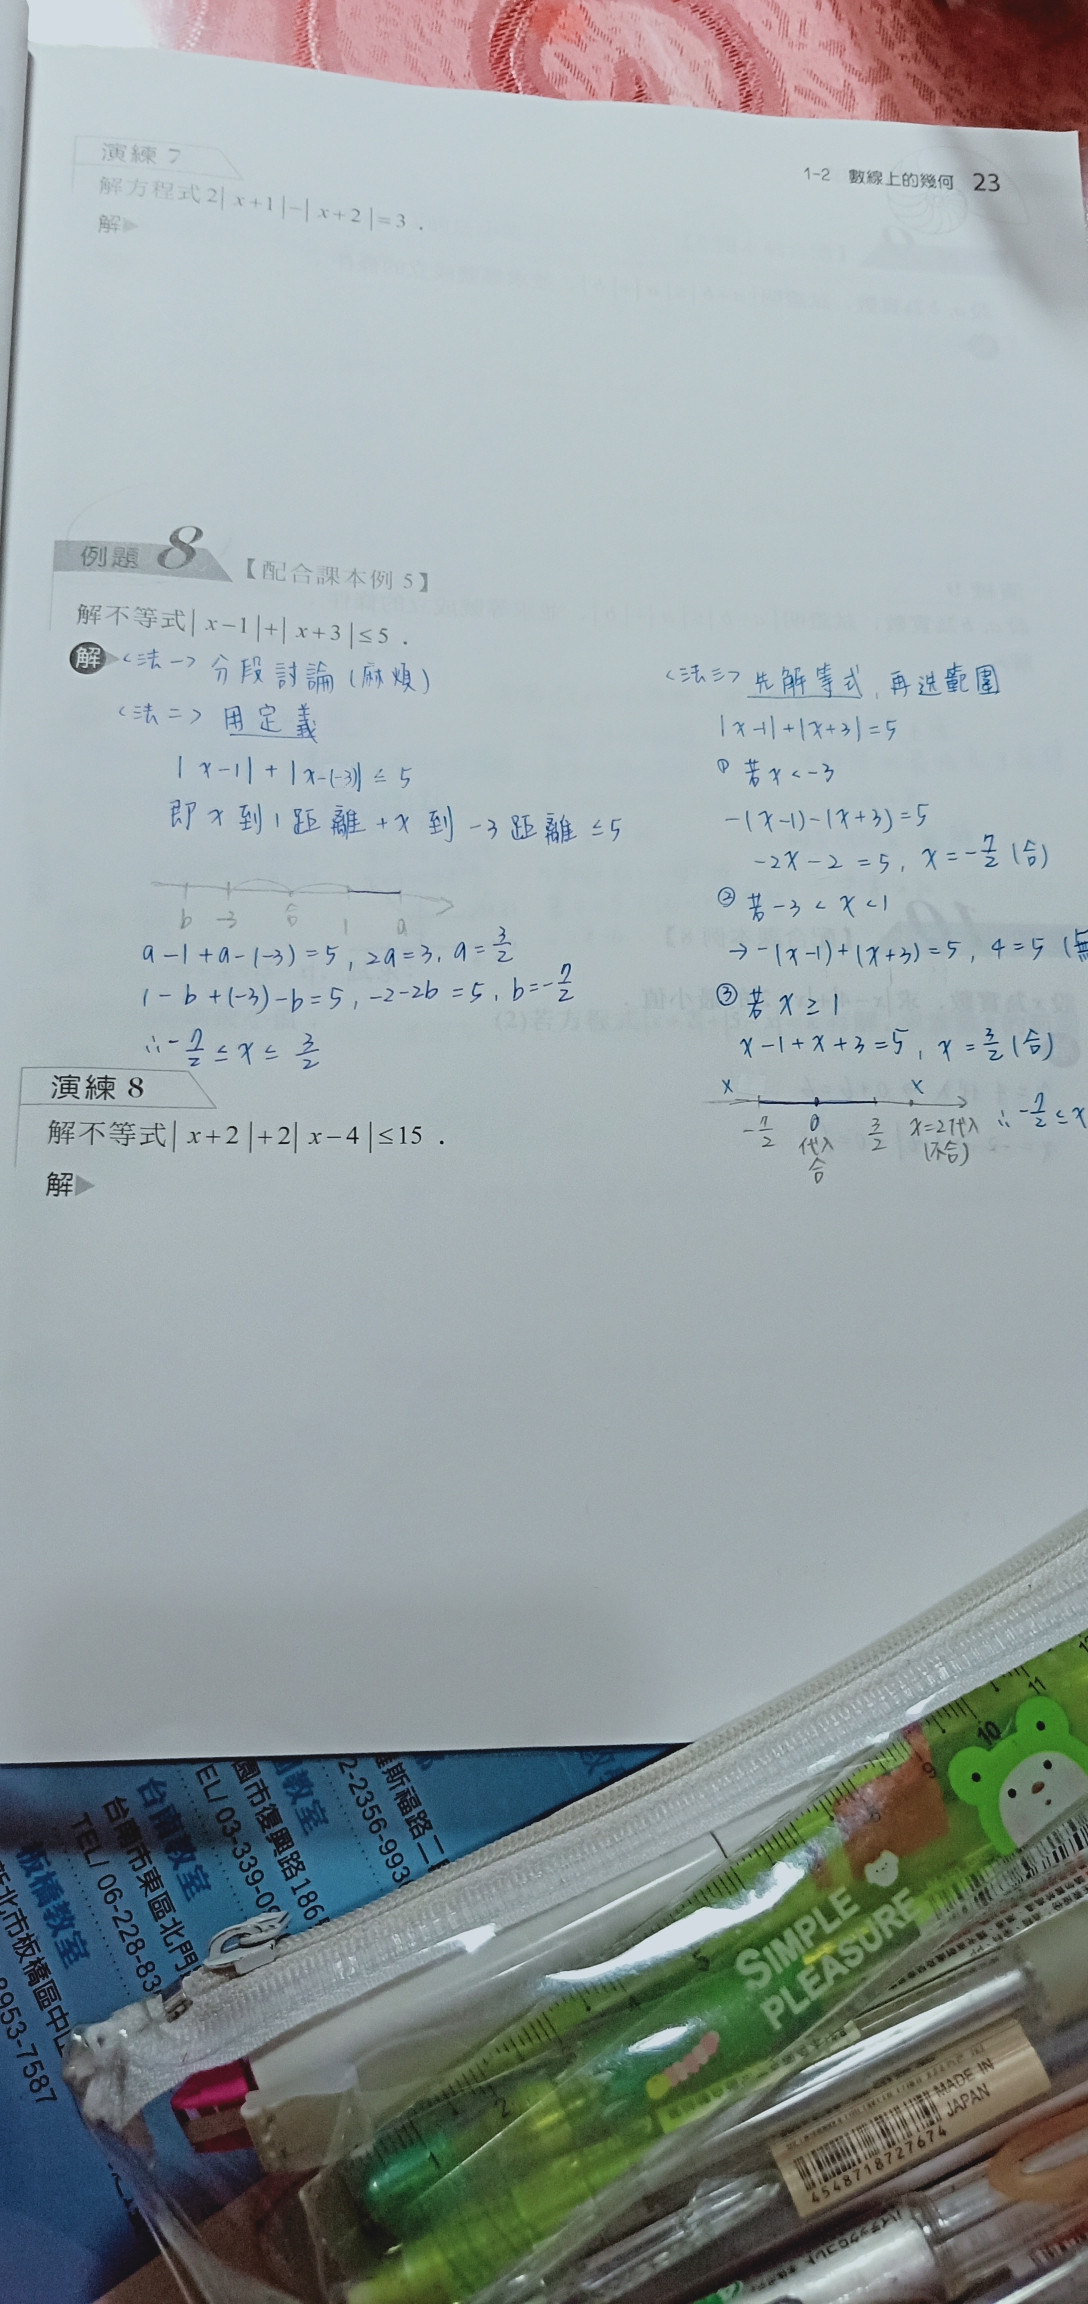 1-2 數線上的幾何 23
演練 7
解方程式 2| x+1 |-| x+2 |=3 .
解
例題 8 【配合課本例 5】
解不等式| x-1 |+| x+3 |≤5 .
解 <法一> 分段討論(麻煩)
<法二> 用定義
| x-1| + |x-(-3)| ≤ 5
即 x 到 1 距離 + x 到 -3 距離 ≤5
b -3 合 1 a
a-1+a-(-3)=5, 2a=3, a=3/2
1-b+(-3)-b=5, -2-2b=5, b=-7/2
∴-7/2 ≤ x ≤ 3/2
<法三> 先解等式, 再選範圍
|x-1|+|x+3|=5
① 若 x<-3
-(x-1)-(x+3)=5
-2x-2=5, x=-7/2 (合)
② 若 -3<x<1
→ -(x-1)+(x+3)=5, 4=5 (無
③ 若 x≥1
x-1+x+3=5, x=3/2 (合)
x x
-7/2 0 3/2 x=2代入 ∴-7/2≤x
代入 (不合)
合
演練 8
解不等式| x+2 |+2| x-4 |≤15 .
解
教室
羅斯福路二
2-2356-993
園市復興路186
EL/ 03-339-0
台南教室
台南市東區北門
TEL/ 06-228-83
板橋教室
新北市板橋區中山
8953-7587
SIMPLE
PLEASURE
1 2 4 5 9 10 11
MADE IN
JAPAN
4548718727674